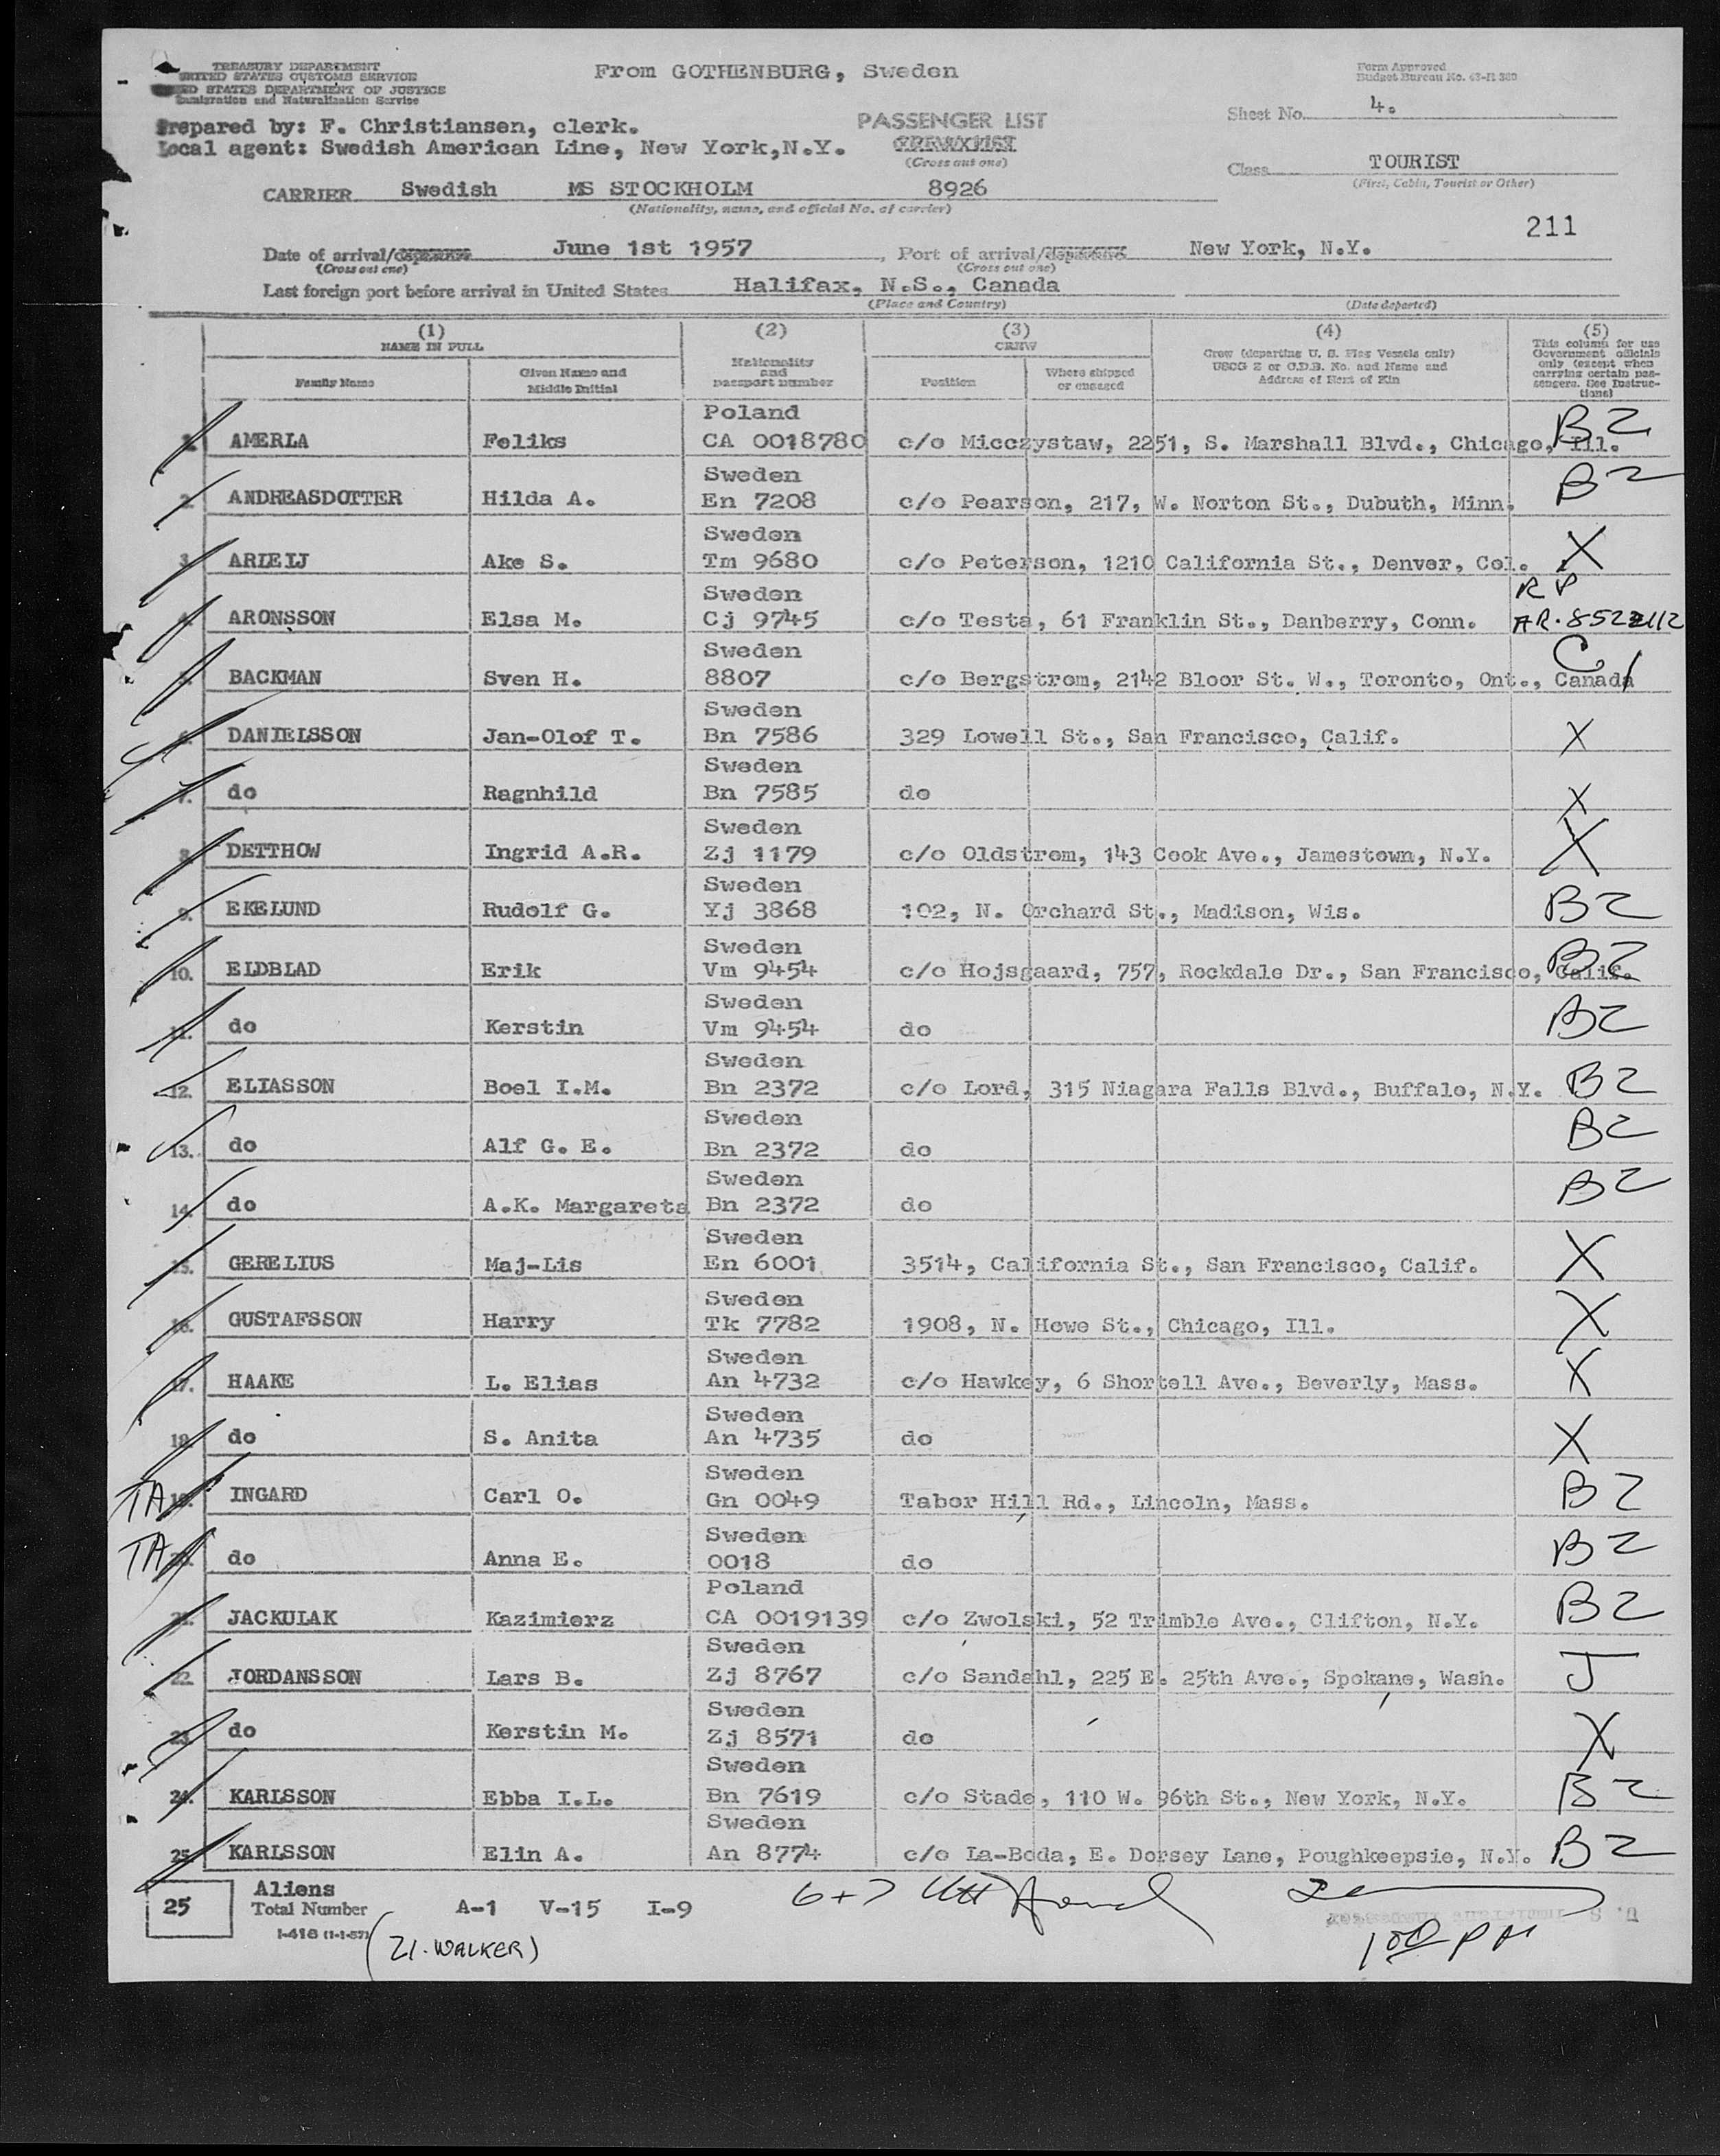 TREASURY DEPARTMENT
UNITED STATES CUSTOMS SERVICE
UNITED STATES DEPARTMENT OF JUSTICE
Immigration and Naturalization Service
From GOTHENBURG, Sweden
Form Approved
Budget Bureau No. 43-R 380
Prepared by: F. Christiansen, clerk.
Local agent: Swedish American Line, New York,N.Y.
PASSENGER LIST
CREW LIST
(Cross out one)
Sheet No. 4.
Class TOURIST
(First, Cabin, Tourist or Other)
CARRIER Swedish MS STOCKHOLM 8926
(Nationality, name, and official No. of carrier)
211
Date of arrival/departure June 1st 1957, Port of arrival/departure New York, N.Y.
(Cross out one) (Cross out one)
Last foreign port before arrival in United States Halifax, N.S., Canada
(Place and Country) (Date departed)
(1) (2) (3) (4) (5)
NAME IN FULL
Family Name
Given Name and Middle Initial
Nationality and passport number
CREW
Position
Where shipped or engaged
Crew (departing U. S. Flag Vessels only) USCG Z or C.D.B. No. and Name and Address of Next of Kin
This column for use Government officials only (except when carrying certain passengers. See Instructions)
Poland
1. AMERLA Feliks CA 0018780 c/o Micczystaw, 2251, S. Marshall Blvd., Chicago, Ill. B2
Sweden
2. ANDREASDOTTER Hilda A. En 7208 c/o Pearson, 217, W. Norton St., Dubuth, Minn. B2
Sweden
3. ARLEIJ Ake S. Tm 9680 c/o Peterson, 1210 California St., Denver, Col. X
Sweden RP
4. ARONSSON Elsa M. Cj 9745 c/o Testa, 61 Franklin St., Danberry, Conn. AR.8522112
Sweden C
5. BACKMAN Sven H. 8807 c/o Bergstrom, 2142 Bloor St. W., Toronto, Ont., Canada
Sweden
6. DANIELSSON Jan-Olof T. Bn 7586 329 Lowell St., San Francisco, Calif. X
Sweden
7. do Ragnhild Bn 7585 do X
Sweden
8. DETTHOW Ingrid A.R. Zj 1179 c/o Oldstrom, 143 Cook Ave., Jamestown, N.Y. X
Sweden
9. EKELUND Rudolf G. Yj 3868 102, N. Orchard St., Madison, Wis. B2
Sweden
10. ELDBLAD Erik Vm 9454 c/o Hojsgaard, 757, Rockdale Dr., San Francisco, Calif. B2
Sweden
11. do Kerstin Vm 9454 do B2
Sweden
12. ELIASSON Boel I.M. Bn 2372 c/o Lord, 315 Niagara Falls Blvd., Buffalo, N.Y. B2
Sweden
13. do Alf G. E. Bn 2372 do B2
Sweden
14. do A.K. Margareta Bn 2372 do B2
Sweden
15. GERELIUS Maj-Lis En 6001 3514, California St., San Francisco, Calif. X
Sweden
16. GUSTAFSSON Harry Tk 7782 1908, N. Howe St., Chicago, Ill. X
Sweden
17. HAAKE L. Elias An 4732 c/o Hawkey, 6 Shortell Ave., Beverly, Mass. X
Sweden
18. do S. Anita An 4735 do X
Sweden
TA 19. INGARD Carl O. Gn 0049 Tabor Hill Rd., Lincoln, Mass. B2
Sweden
TA 20. do Anna E. 0018 do B2
Poland
21. JACKULAK Kazimierz CA 0019139 c/o Zwolski, 52 Trimble Ave., Clifton, N.Y. B2
Sweden
22. JORDANSSON Lars B. Zj 8767 c/o Sandahl, 225 E. 25th Ave., Spokane, Wash. J
Sweden
23. do Kerstin M. Zj 8571 do X
Sweden
24. KARLSSON Ebba I.L. Bn 7619 c/o Stade, 110 W. 96th St., New York, N.Y. B2
Sweden
25. KARLSSON Elin A. An 8774 c/o La-Boda, E. Dorsey Lane, Poughkeepsie, N.Y. B2
25 Aliens
Total Number A-1 V-15 I-9 6+7
I-418 (1-1-57)
(21. WALKER)
1 00 PM